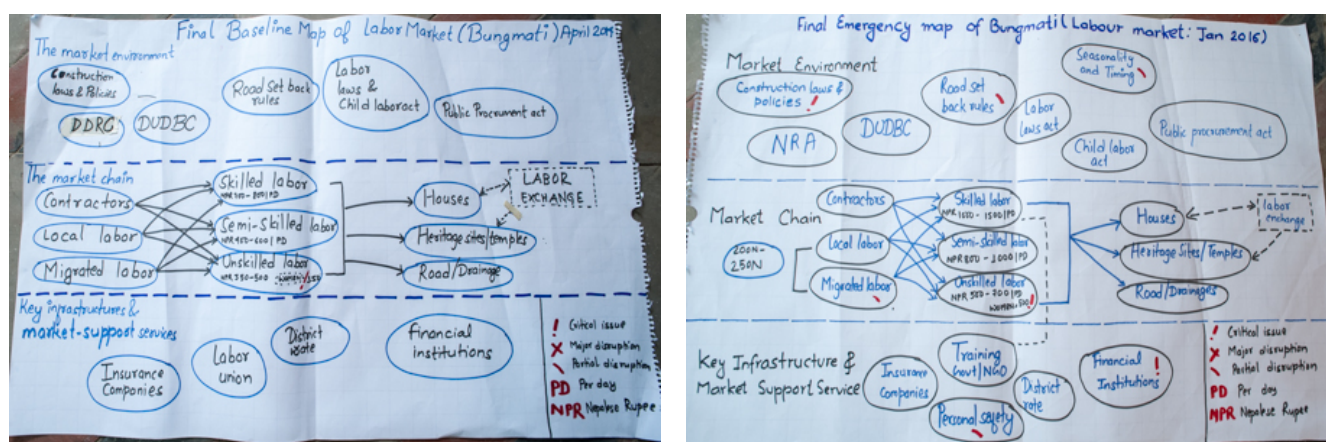 Final Baseline Map of Labor Market (Bungmati) April 2015
The market environment
Construction
laws & Policies
DDRC
DUDBC
Road Set back
rules
Labor
laws &
Child laboract
Public Procrument act
The market chain
Contractors
Local labor
Migrated labor
Skilled labor
Semi-Skilled labor
NPR 450-600/PD
Unskilled labor
Houses
Heritage sites/temples
Road/Drainage
LABOR
EXCHANGE
Key infrastructures &
market-support services
Insurance
Companies
Labor
union
District
rate
Financial
institutions
! Critical issue
X Major disruption
\ Partial disruption
PD Per day
NPR Nepalese Rupee
Final Emergency map of Bungmati (Labour market: Jan 2016)
Market Environment
Construction laws &
policies !
NRA
DUDBC
Road set
back rules
Seasonality
and Timing
Labor
laws act
Child labor
act
Public procurement act
Market Chain
200N-
250N
Contractors
Local labor
Migrated labor
Skilled labor
Semi-skilled labor
NPR 800-1000/PD
Unskilled labor
Houses
Heritage Sites/Temples
Road/Drainages
labor
exchange
Key Infrastructure &
Market Support Service
Insurance
Companies
Training
Govt/NGO
Personal safety
District
rate
Financial !
Institutions
! Critical issue
X Major disruption
\ Partial disruption
PD Per day
NPR Nepalese Rupee